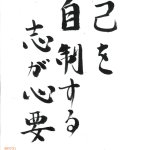 己を
自制する
志が心要